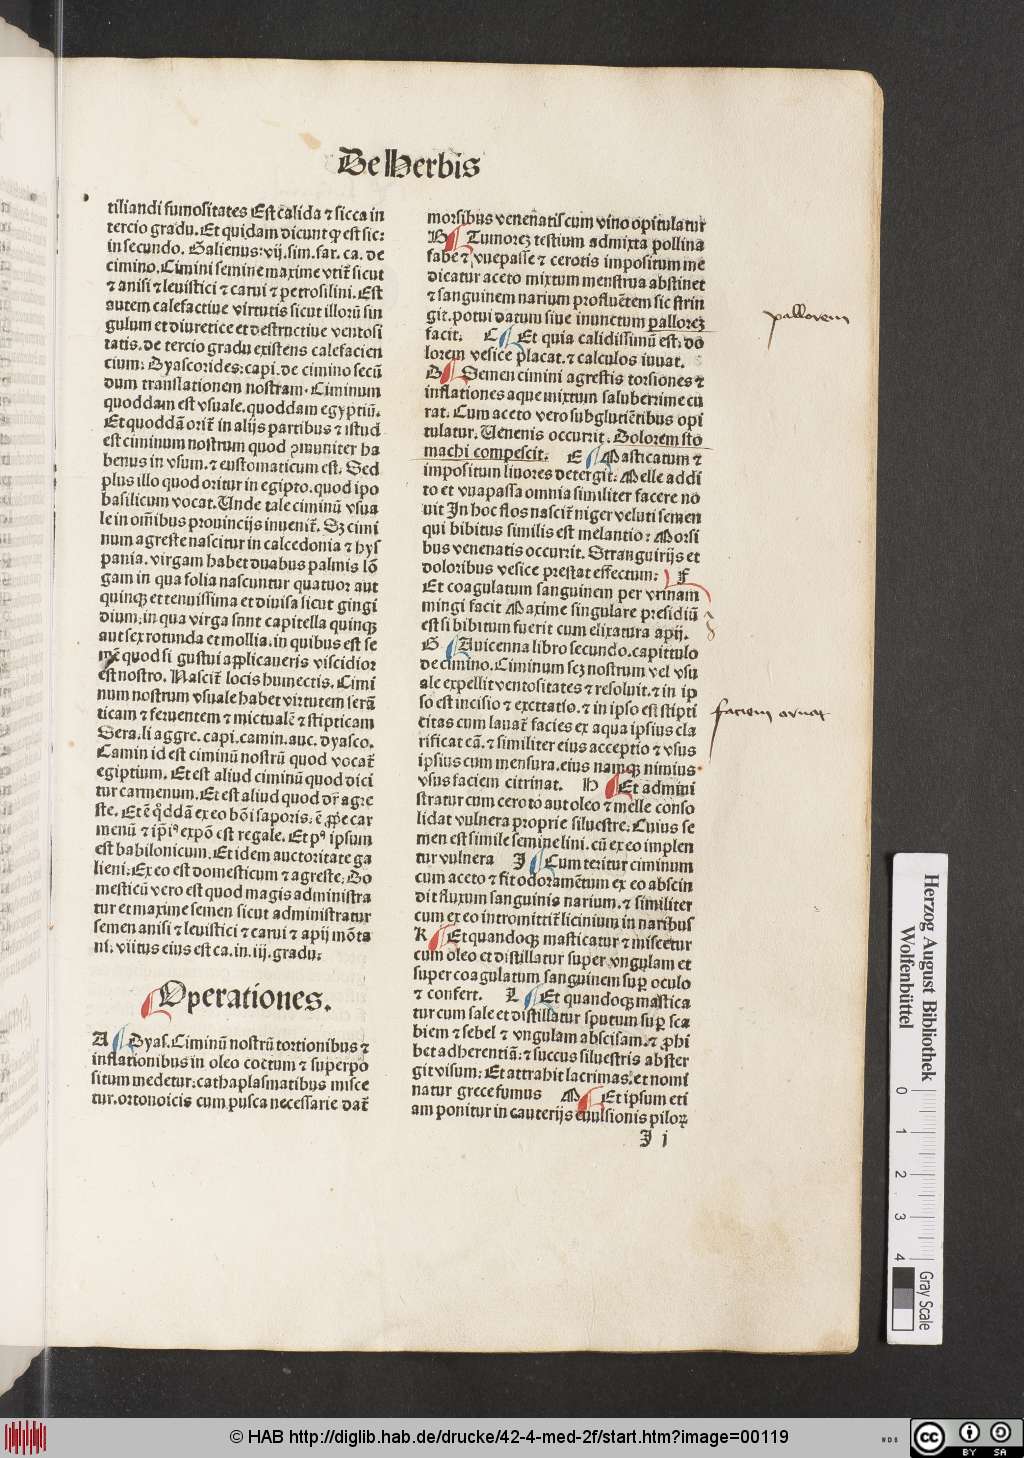 De Herbis
tiliandi fumositates Est calida ⁊ sicca in
tercio gradu. Et quidam dicunt ꝙ est sic:
in secundo. Galienus: vij. sim. far. ca. de
cimino. Cimini semine maxime vtit̃ sicut
⁊ anisi ⁊ leuistici ⁊ carui ⁊ petrosilini. Est
autem calefactiue virtutis sicut illorũ sin
gulum et diuretice et destructiue ventosi
tatis. de tercio gradu existens calefacien
cium: Dyascorides: capi. de cimino secũ
dum translationem nostram. Ciminum
quoddam est vsuale. quoddam egyptiũ.
Et quoddã orit̃ in alijs partibus ⁊ istud
est ciminum nostrum quod ꝯmuniter ha
benus in vsum. ⁊ eustomaticum est. Sed
plus illo quod oritur in egipto. quod ipo
basilicum vocat. Unde tale ciminũ vsua
le in om̃ibus prouincijs inuenit̃. Sꝫ cimi
num agreste nascitur in calcedonia ⁊ hys
pania. virgam habet duabus palmis lõ
gam in qua folia nascuntur quatuor aut
quinqꝫ et tenuissima et diuisa sicut gingi
dium: in qua virga snnt capitella quinqꝫ
aut sex rotunda et mollia. in quibus est se
mẽ quod si gustui applicaueris viscidior
est nostro. Nascit̃ locis humectis. Cimi
num nostrum vsuale habet virtutem serã
ticam ⁊ feruentem ⁊ mictualẽ ⁊ stipticam
Sera. li aggre. capi. camin. auc. dyasco.
Camin id est ciminũ nostrũ quod vocat̃
egiptium. Et est aliud ciminũ quod dici
tur carmenum. Et est aliud quod dr̃ agre
ste. Et ẽ qͦddã ex eo bõi saporis: ẽ ꝓpe car
menũ ⁊ ip̃iꝰ expõ est regale. Et pꝰ ipsum
est babilonicum. Et idem auctoritate ga
lieni: Ex eo est domesticum ⁊ agreste: Do
mesticũ vero est quod magis administra
tur et maxime semen sicut administratur
semen anisi ⁊ leuistici ⁊ carui ⁊ apij mõta
ni. viitus eius est ca. in. iij. gradu:
Operationes.
A Dyas. Ciminũ nostrũ tortionibus ⁊
inflationibus in oleo coctum ⁊ superpo
situm medetur: cathaplasmatibus misce
tur. ortonoicis cum pusca necessarie dat̃
morsibus venenatis cum vino opitulatur
B Tumorez testium admixta pollina
fabe ⁊ vuepasse ⁊ cerotis impositum me
dicatur aceto mixtum menstrua abstinet
⁊ sanguinem narium profluẽtem sic strin
git. potui datum siue inunctum pallorez
facit: C Et quia calidissimũ est: do
lorem vesice placat. ⁊ calculos iuuat.
D Semen cimini agrestis torsiones ⁊
inflationes aque mixtum saluberrime cu
rat. Cum aceto vero subglutiẽtibus opi
tulatur. Uenenis occurrit. Dolorem sto
machi compescit. E Masticatum ⁊
impositum liuores detergit: Melle addi
to et vuapassa omnia similiter facere no
uit In hoc flos nascit̃ niger veluti semen
qui bibitus similis est melantio: Morsi
bus venenatis occurrit. Stranguirijs et
doloribus vesice prestat effectum: F
Et coagulatum sanguinem per vrinam
mingi facit Maxime singulare presidiũ
est si bibitum fuerit cum elixatura apij.
G Auicenna libro secundo. capittulo
de cimino. Ciminum scz nostrum vel vsu
ale expellit ventositates ⁊ resoluit. ⁊ in ip
so est incisio ⁊ excttatio. ⁊ in ipso est stipti
citas cum lauat̃ facies ex aqua ipsius cla
rificat eã. ⁊ similiter eius acceptio ⁊ vsus
ipsius cum mensura. eius namqꝫ nimius
vsus faciem citrinat. H Et admini
stratur cum ceroto aut oleo ⁊ melle conso
lidat vulnera proprie siluestre: Cuius se
men est simile semine lini. cũ ex eo implen
tur vulnera I Cum teritur ciminum
cum aceto ⁊ fit odoramẽtum ex eo abscin
dit fluxum sanguinis narium. ⁊ similiter
cum ex eo intromittit̃ licinium in naribus
K Et quandoqꝫ masticatur ⁊ miscetur
cum oleo et distillatur super vngulam et
super coagulatum sanguinem suꝑ oculo
⁊ confert. L Et quandoqꝫ mastica
tur cum sale et distillatur sputum suꝑ sca
biem ⁊ sebel ⁊ vngulam abscisam. ⁊ ꝓhi
bet adherentiã: ⁊ succus siluestris abster
git visum: Et attrahit lacrimas. et nomi
natur grece fumus M Et ipsum eti
am ponitur in cauterijs euulsionis piloꝝ
I j
pallorem
faciem ornat
Herzog August Bibliothek
Wolfenbüttel
0 1 2 3 4
Gray Scale
© HAB http://diglib.hab.de/drucke/42-4-med-2f/start.htm?image=00119
WDB
cc BY SA